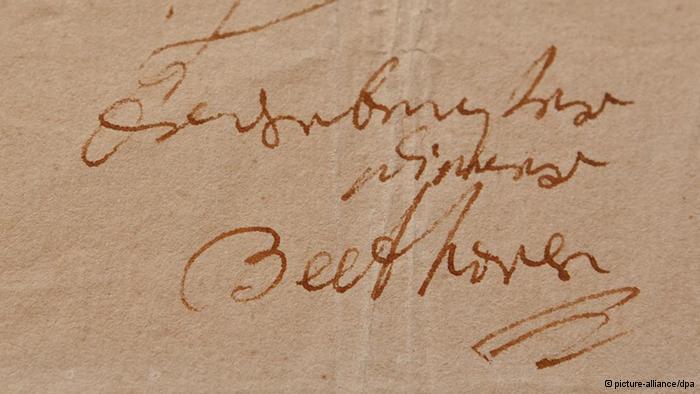 Ergebenster
Diener
Beethoven
©picture-alliance/dpa